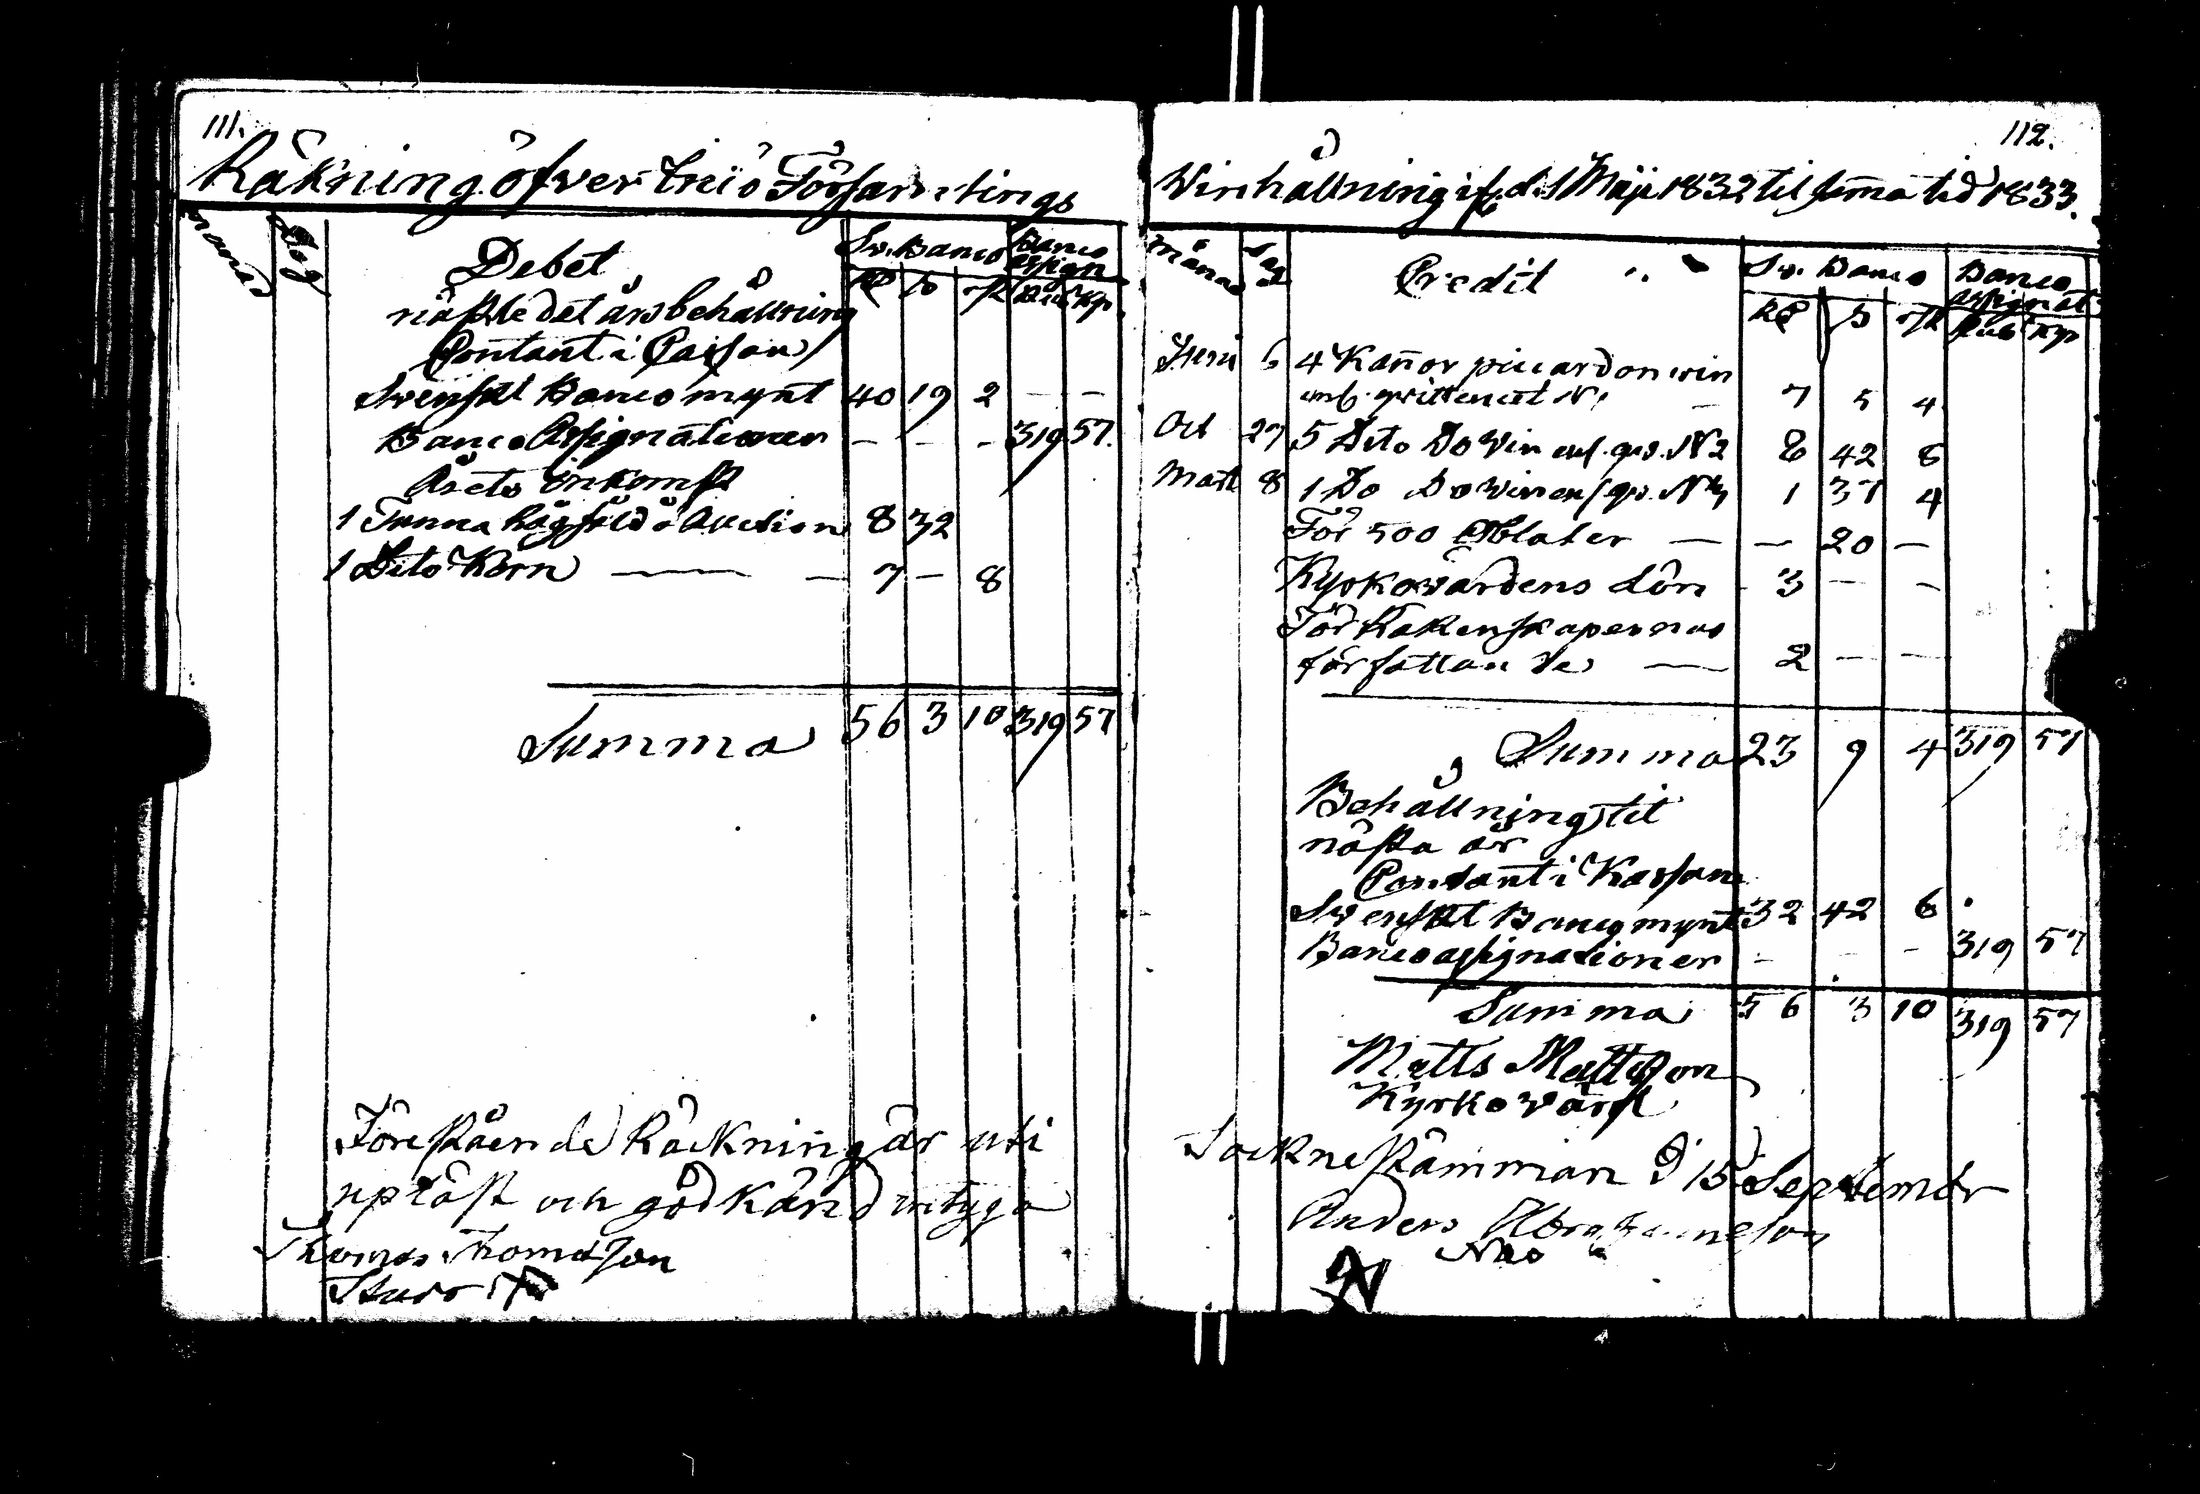 111.
Räkning öfver Iniö Församlings
månad Dag Debet Sv. Banco Banco assign
Rd ß rst Rub Kp.
nästledet års behållning
Contant i Cassan
Svenskt Banco mynt 40 19 2 — —
Banco Assignationer — — — 319 57.
Årets Inkomst
1 Tunna Råg såld å Auction 8 32
1 Dito Korn — — 7 — 8
Summa 56 3 10 319 57
Föreståen de Räckning är uti
upläst och godkänd intyga
Thomas Thomasson
112.
Winhållning ifr. d. 1 Maji 1832 til sama tid 1833.
Månad Dag Credit Sv. Banco Banco assignat
Rd ß rst Rub Kp
Juni 6 4 Kañor piccardon win
enl. qvittencet N 1 — 7 5 4
Oct 27 5 Dito Do Vin enl. qv. N 2 8 42 8
Mart 8 1 Do Do Vin enl qv. N 3 1 37 4
För 500 Oblater — — 20 —
Kyrkovärdens Lön 3 — —
För Räkenskapernas
författan de — 2 — —
Summa 23 9 4 319 57
Behållning til
nästa år
Contant i Kassan
Svenskt Banco mynt 32 42 6
Banco assignationer — — — 319 57
Summa 56 3 10 319 57
Matts Mattsson
Kyrkovärd
Socknestämman d 15 September
Anders Abrahamsson